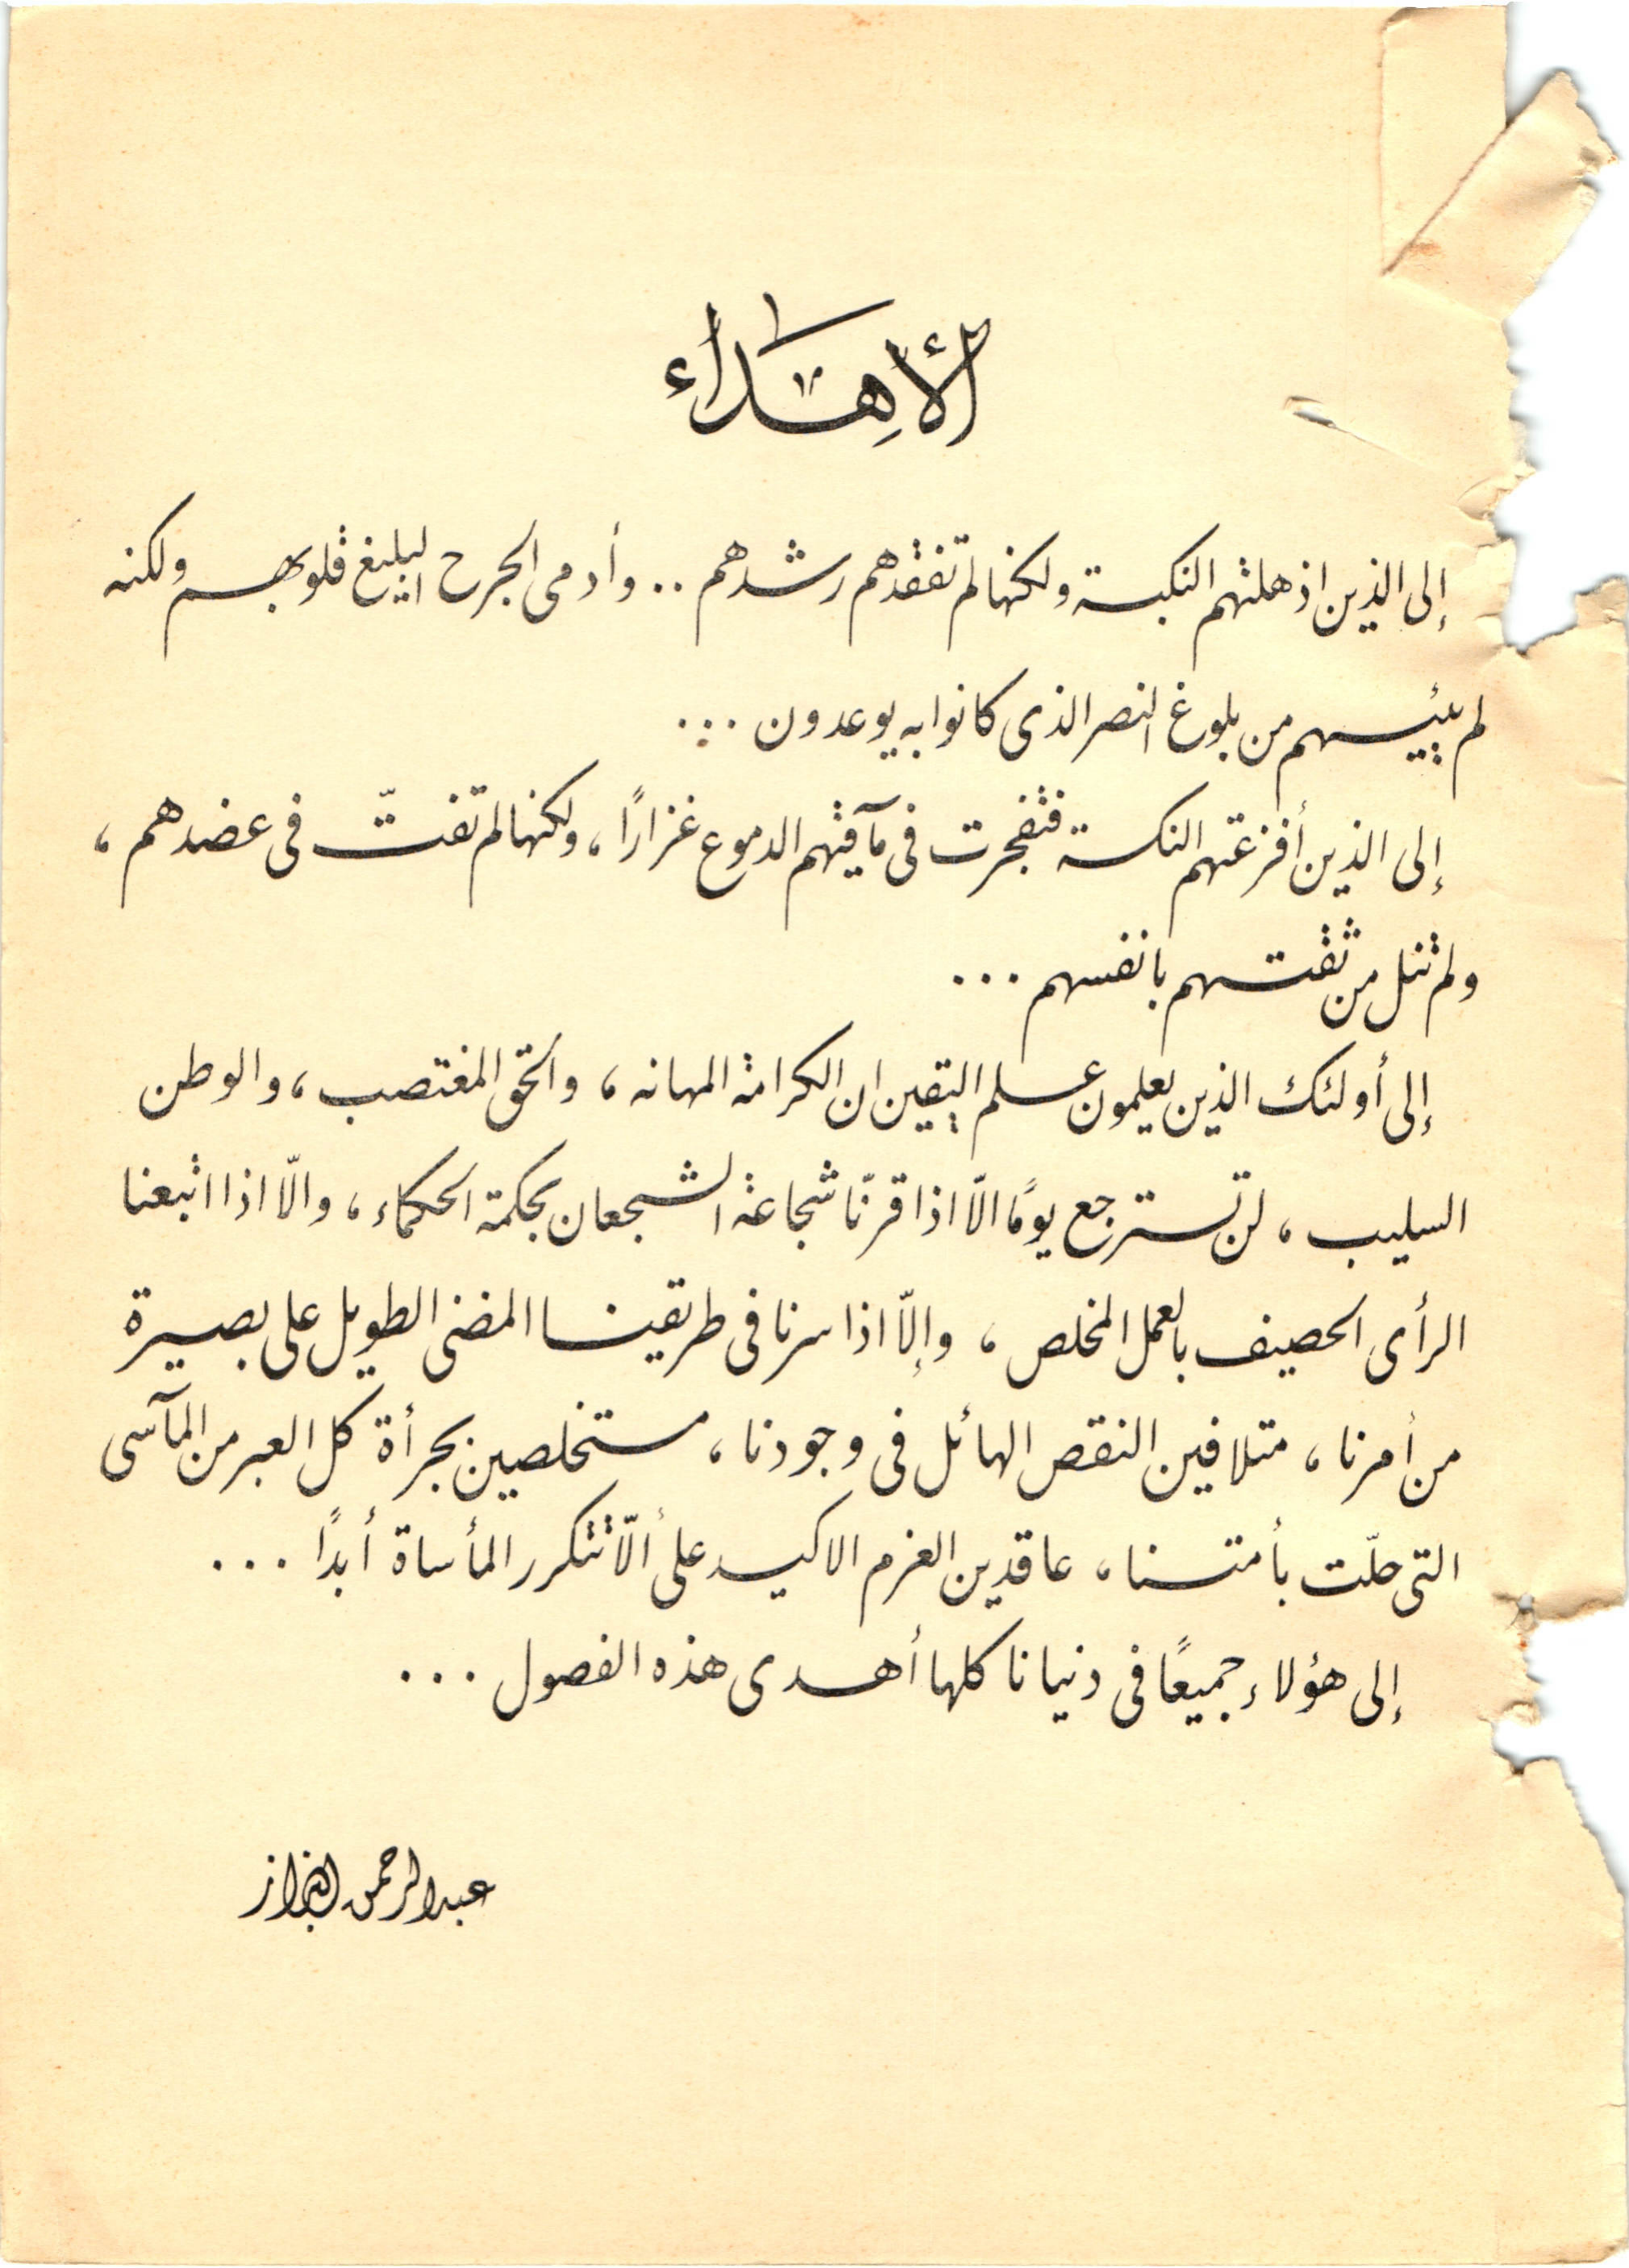 الأهداء
إلى الذين اذهلتهم النكبة ولكنها لم تفقدهم رشدهم .. وأدمى الجرح البليغ قلوبهم ولكنه
لم ييئسهم من بلوغ النصر الذى كانوا به يوعدون ...
إلى الذين أفزعتهم النكسة فتفجرت فى مآقيهم الدموع غزارًا ، ولكنها لم تفتّ فى عضدهم ،
ولم تنل من ثقتهم بانفسهم ...
إلى أولئك الذين يعلمون علم اليقين ان الكرامة المهانه ، والحق المغتصب ، والوطن
السليب ، لن تسترجع يومًا الاّ اذا قرنّا شجاعة الشجعان بحكمة الحكماء ، والاّ اذا اتبعنا
الرأى الحصيف بالعمل المخلص ، وإلاّ اذا سرنا فى طريقنا المضنى الطويل على بصيرة
من أمرنا ، متلافين النقص الهائل فى وجودنا ، مستخلصين بجرأة كل العبر من المآسى
التى حلّت بأمتنا ، عاقدين العزم الاكيد على ألاّ تتكرر المأساة أبدًا ...
إلى هؤلاء جميعًا فى دنيانا كلها أهدى هذه الفصول ...
عبدالرحمن البزاز